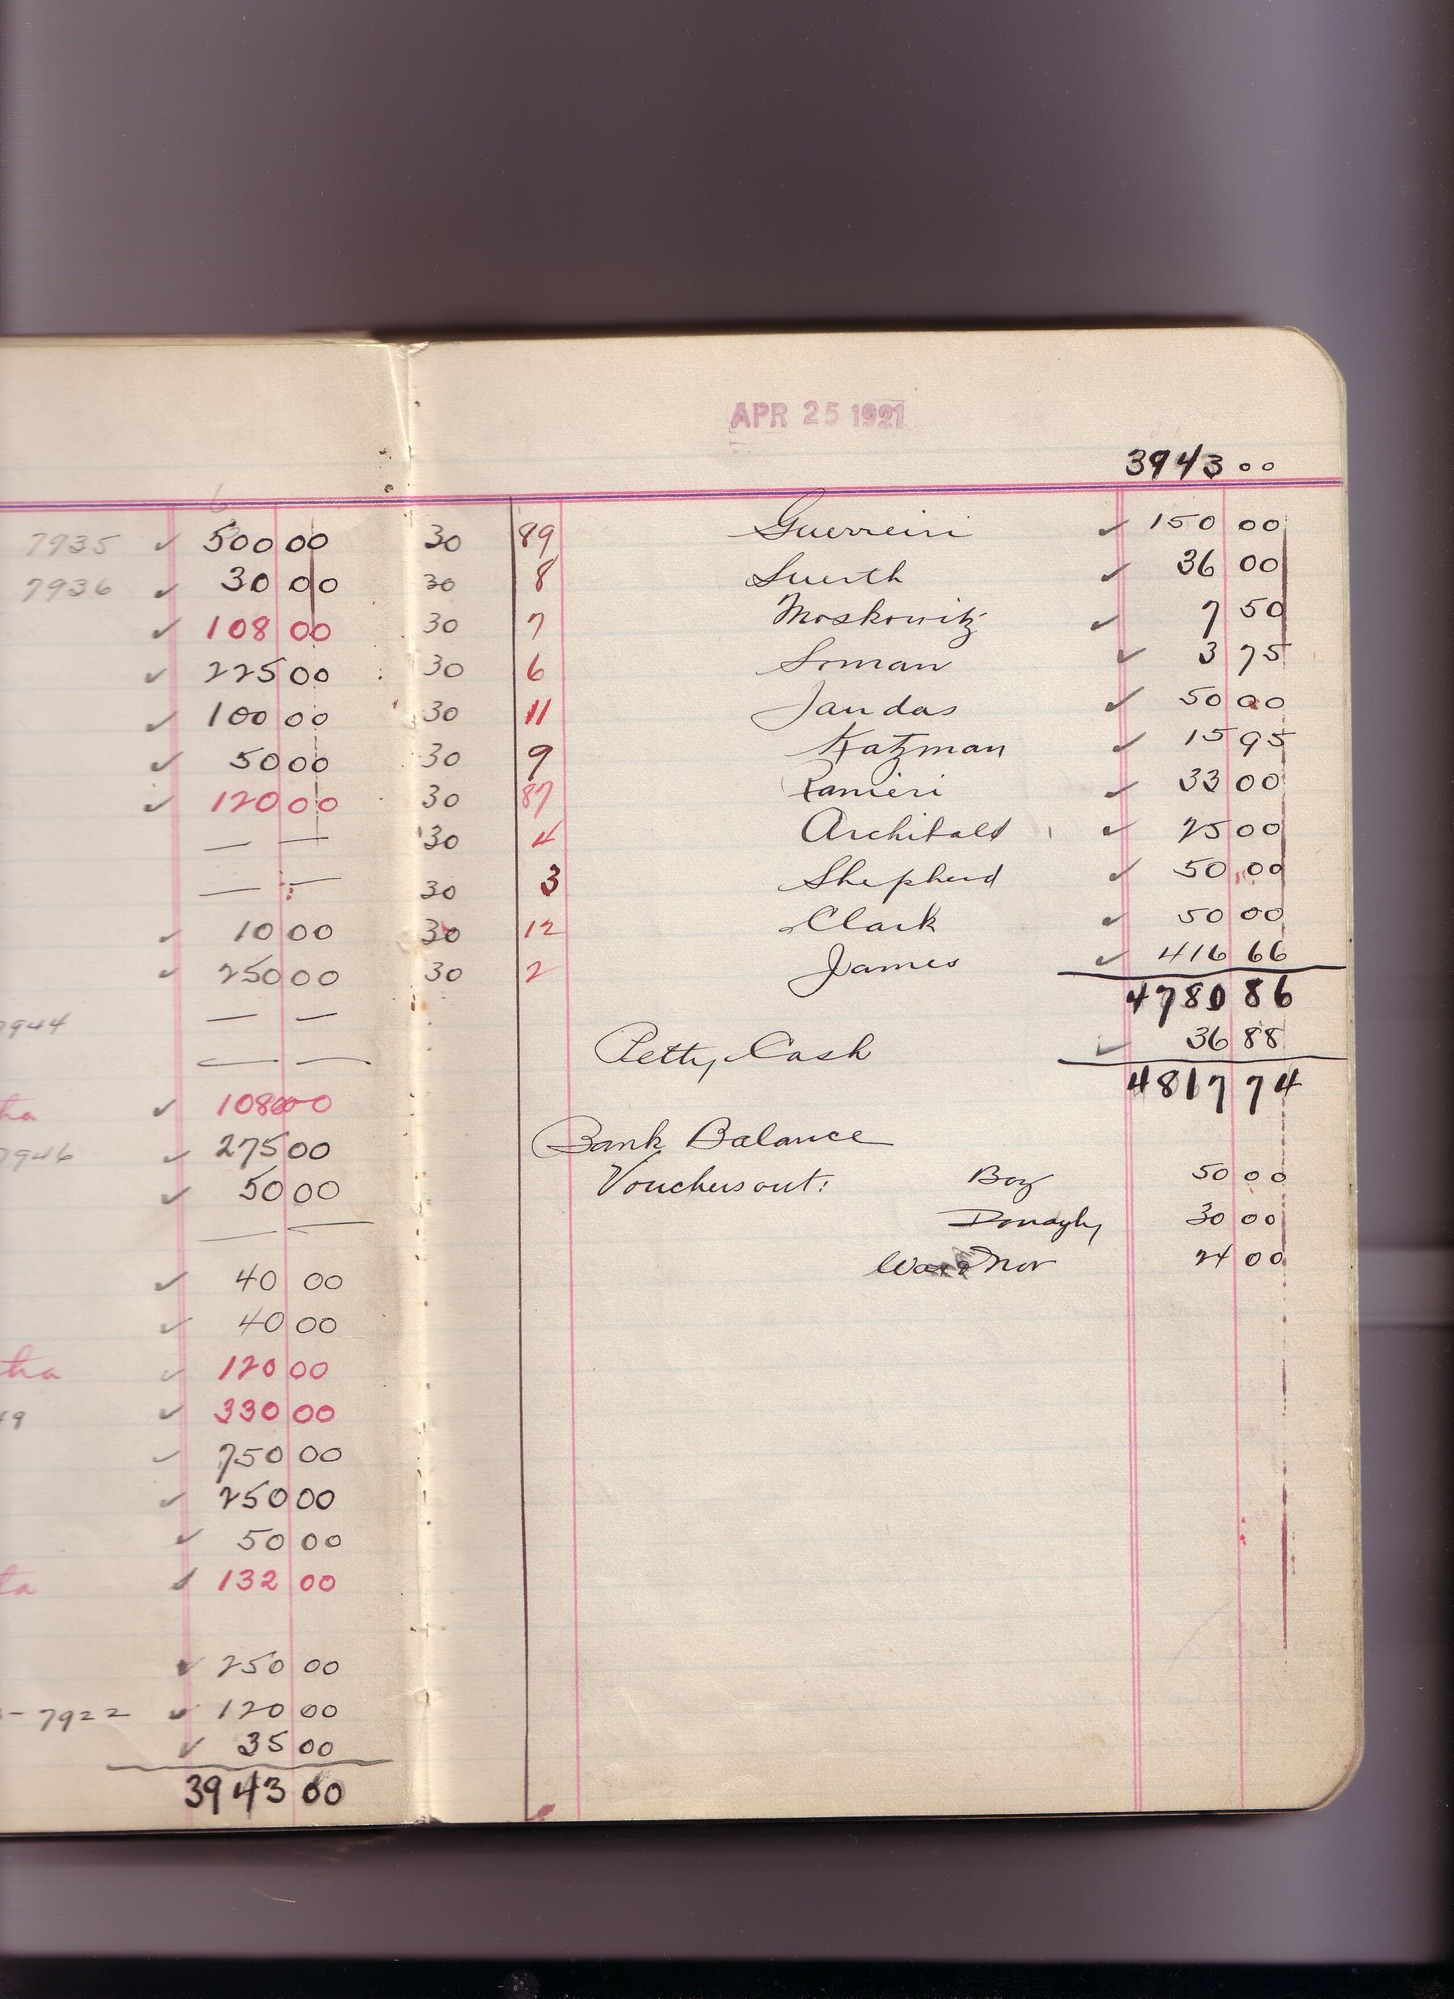 7935 500 00
7936 30 00
108 00
225 00
100 00
50 00
120 00
— —
— —
10 00
250 00
7944 — —
— —
108 00
7946 275 00
50 00
— —
40 00
40 00
120 00
330 00
750 00
250 00
50 00
132 00
250 00
- 7922 120 00
35 00
3943 00
APR 25 1921
3943 00
30 89 Guerreiri 150 00
30 8 Suerth 36 00
30 7 Moskowitz 7 50
30 6 Soman 3 75
30 11 Jandas 50 00
30 9 Katzman 15 95
30 87 Ranieri 33 00
30 4 Archibald 25 00
30 3 Shepherd 50 00
30 12 Clark 50 00
30 2 James 416 66
4780 86
Petty Cash 36 88
4817 74
Bank Balance
Vouchers out: Boy 50 00
Donaghy 30 00
Nov 24 00